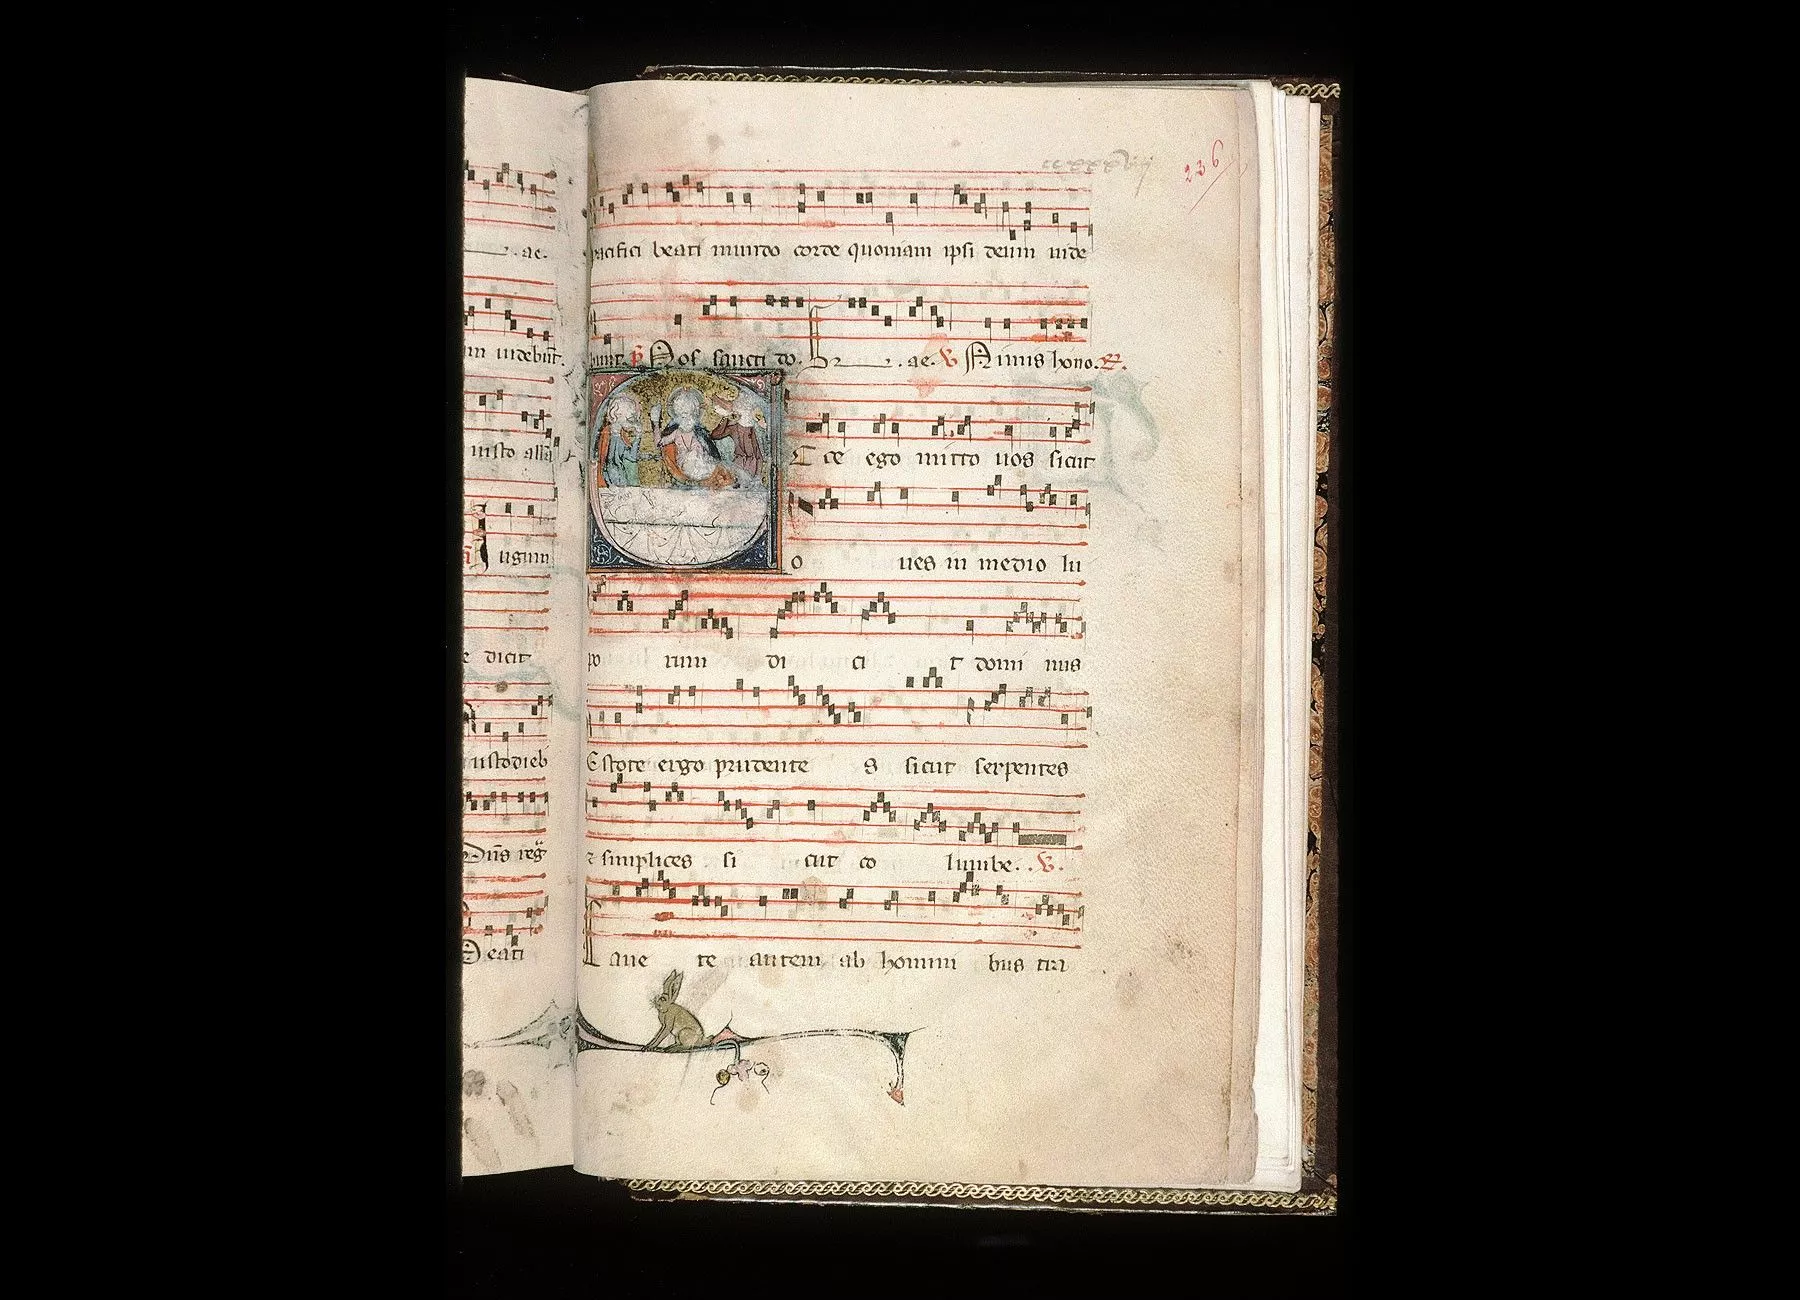 ae.
videbūt.
iusto alla
ugum
e dicit
custodieb
Dn̄s reg
Beati
236
pacifici beati mundo corde quoniam ipsi deum uide
bunt p̄ Vos sancti do. ae. V Nimis hono. R.
E cce ego mitto uos sicut
o ues in medio lu
po rum di ci t domi nus
E stote ergo prudente s sicut serpentes
⁊ simplices si cut co lumbe. . V.
C aue te autem ab homini bus tra